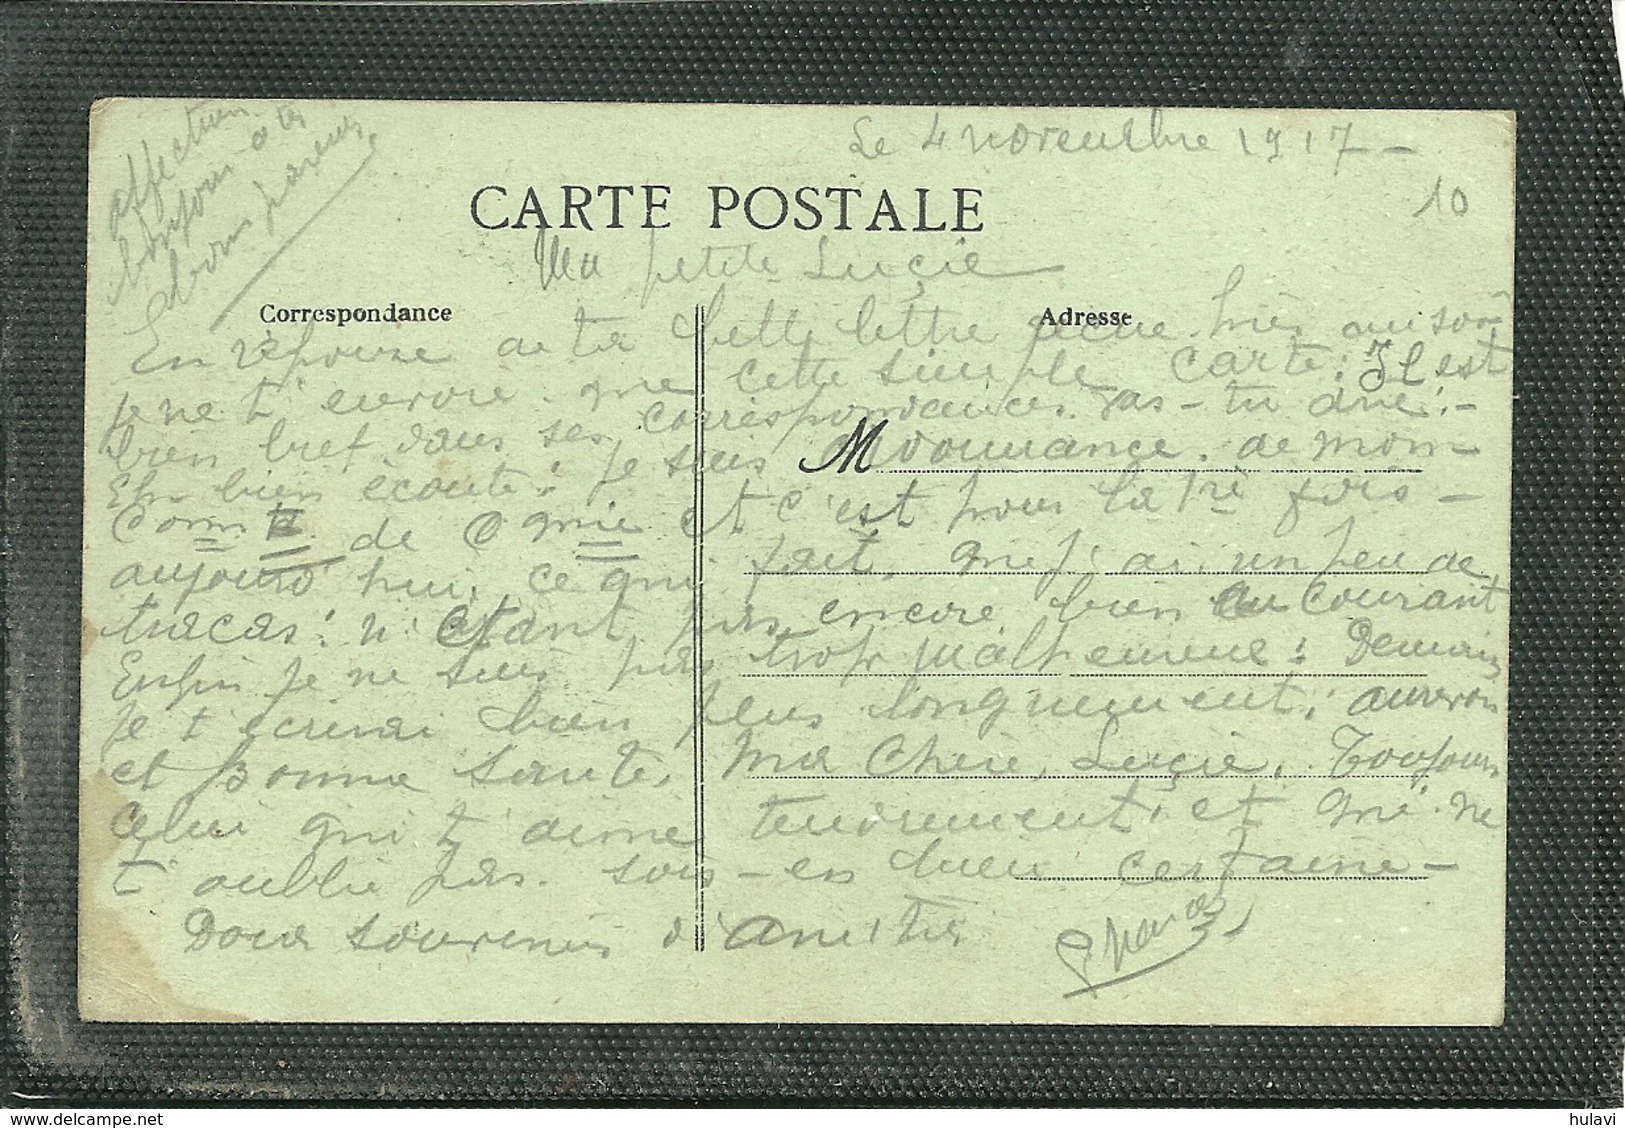 Le 4 novembre 1917 -
10
CARTE POSTALE
Ma petite Lucie
Correspondance
Adresse
En réponse de ta belle lettre recue hier au soir
je ne t'envoie que cette simple carte: Il est
bien bref dans ses correspondances vas-tu dire! -
Eh bien écoute: je suis M donnance de mon -
Comt de Cgnie et c'est pour la 1re fois -
aujourd'hui, ce qui fait que j'ai un peu de
tracas: n'étant pas encore bien au courant
Enfin je ne suis pas trop malheureux: Demain
je t'écrirai bien plus longuement; au revoir
et Bonne santé, Ma Chère Lucie. Toujours
Celui qui t'aime tendrement, et qui ne
t'oublie pas. sois-en bien certaine -
Doux souvenirs d'amitié
affection
bonjour a tes
bons parents
hulavi